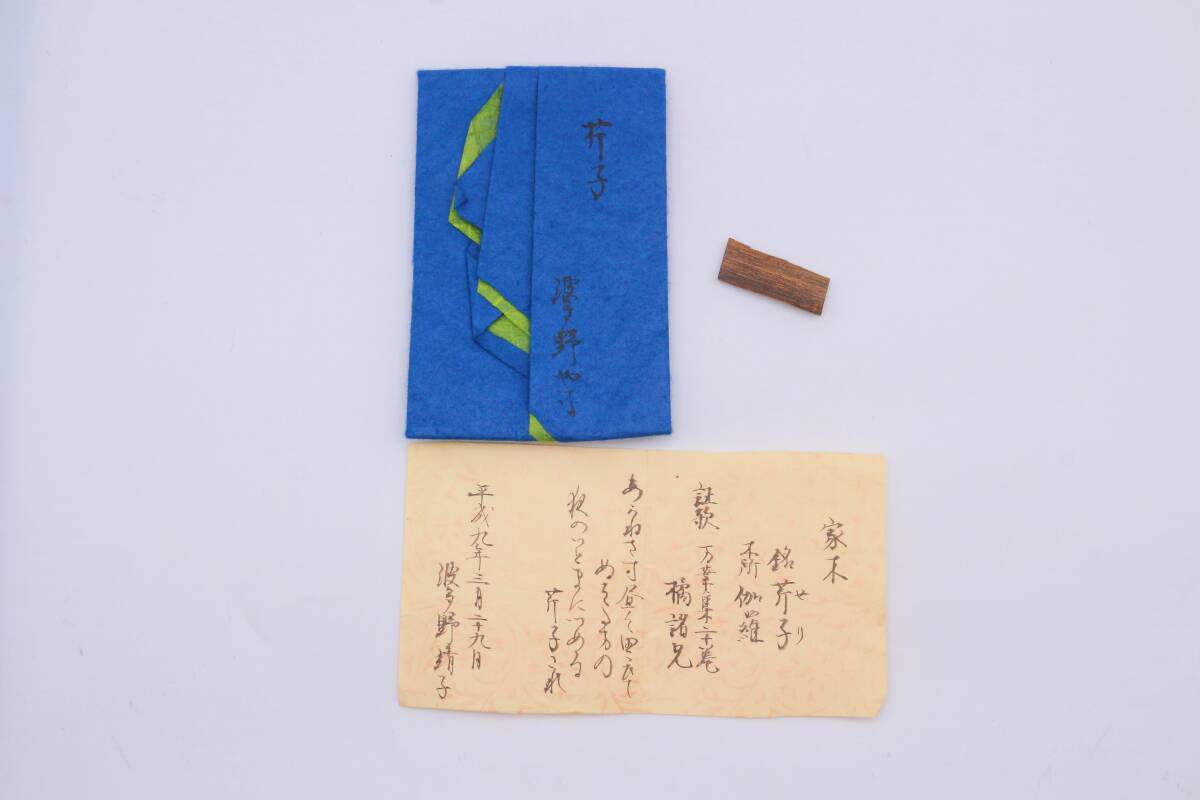 芹子
波多野
家木
銘 芹子
せり
木所 伽羅
証歌 万葉集二十巻
橘諸兄
あかねさす昼は田たひて
ぬはたまの
夜のいとまにつめる
芹子これ
平成九年三月二十九日
波多野靖子